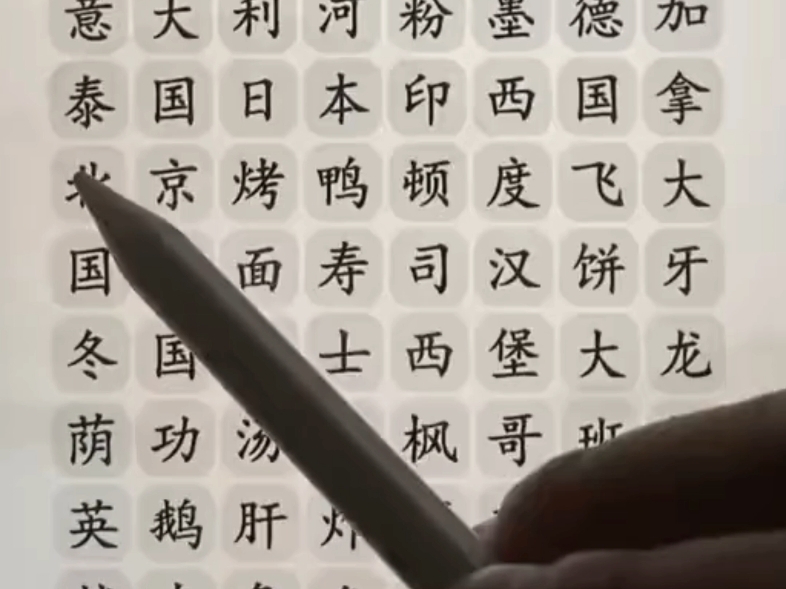 意大利河粉墨德加
泰国日本印西国拿
北京烤鸭顿度飞大
国面寿司汉饼牙
冬国士西堡大龙
荫功汤枫哥班
英鹅肝炸